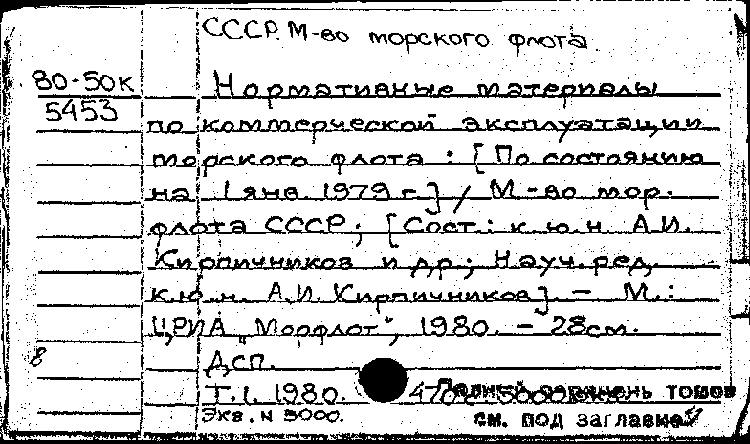 СССР. М-во морского флота.
80-50к Нормативные материалы
5453
по коммерческой эксплуатации
морского флота : [По состоянию
на 1 янв. 1979 г.] / М-во мор.
флота СССР; [Сост.: к.ю.н. А.И.
Кирпичников и др.; Науч. ред.
к.ю.н. А.И. Кирпичников]. – М.:
ЦРИА „Морфлот", 1980. – 28см.
8 ДСП.
Т.1. 1980. Полный перечень томов
Экв. N 3000. см. под заглавной